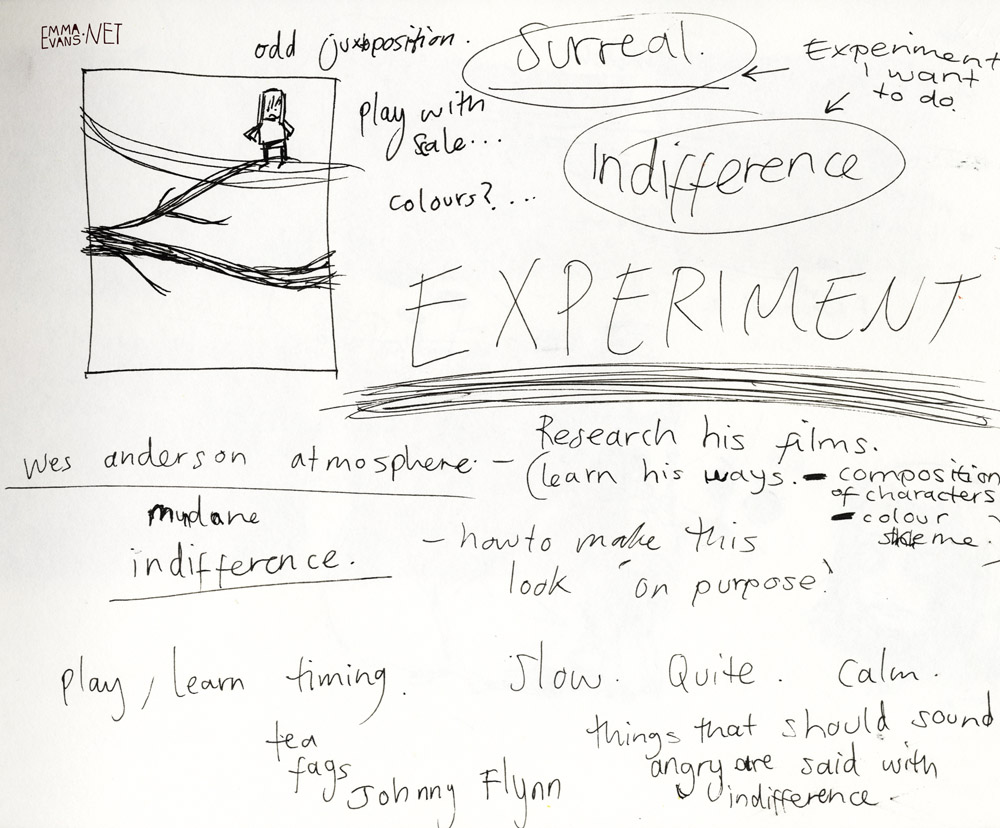 EMMA
EVANS.NET
odd juxtoposition.
Surreal.
Experiment
I want
to do.
play with
scale...
Indifference
colours?...
EXPERIMENT
Wes anderson atmosphere. –
Research his films.
(learn his ways. - composition
of characters
- colour
skeme.
mundane
indifference.
- how to make this
look 'on purpose'
play, learn timing.
Slow. Quite. Calm.
tea
fags
Johnny Flynn
things that should sound
angry are said with
indifference.